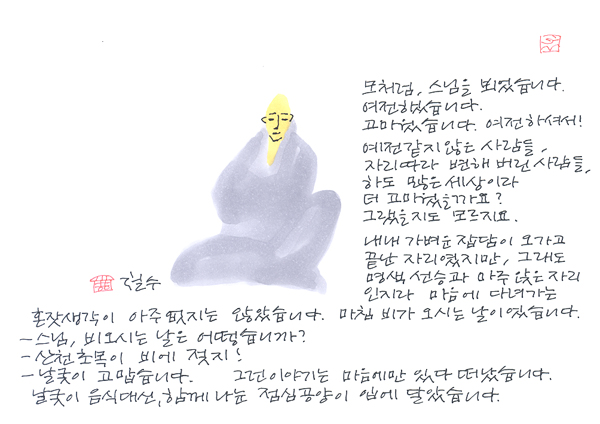 모처럼, 스님을 뵈었습니다.
여전했습니다.
고마웠습니다. 여전하셔서!
예전같지 않은 사람들,
자리따라 변해 버린 사람들,
하도 많은 세상이라
더 고마웠을까요?
그랬을지도 모르지요.
내내 가벼운 잡담이 오가고
끝난 자리였지만, 그래도
명색 선승과 마주 앉은 자리
인지라 마음에 다녀가는
혼잣생각이 아주 없지는 않았습니다. 마침 비가 오시는 날이었습니다.
- 스님, 비오시는 날은 어떻습니까?
- 산천초목이 비에 젖지!
- 날궂이 고맙습니다. 그런 이야기는 마음에만 있다 떠났습니다.
날궂이 음식대신, 함께 나눈 점심공양이 입에 달았습니다.
철수